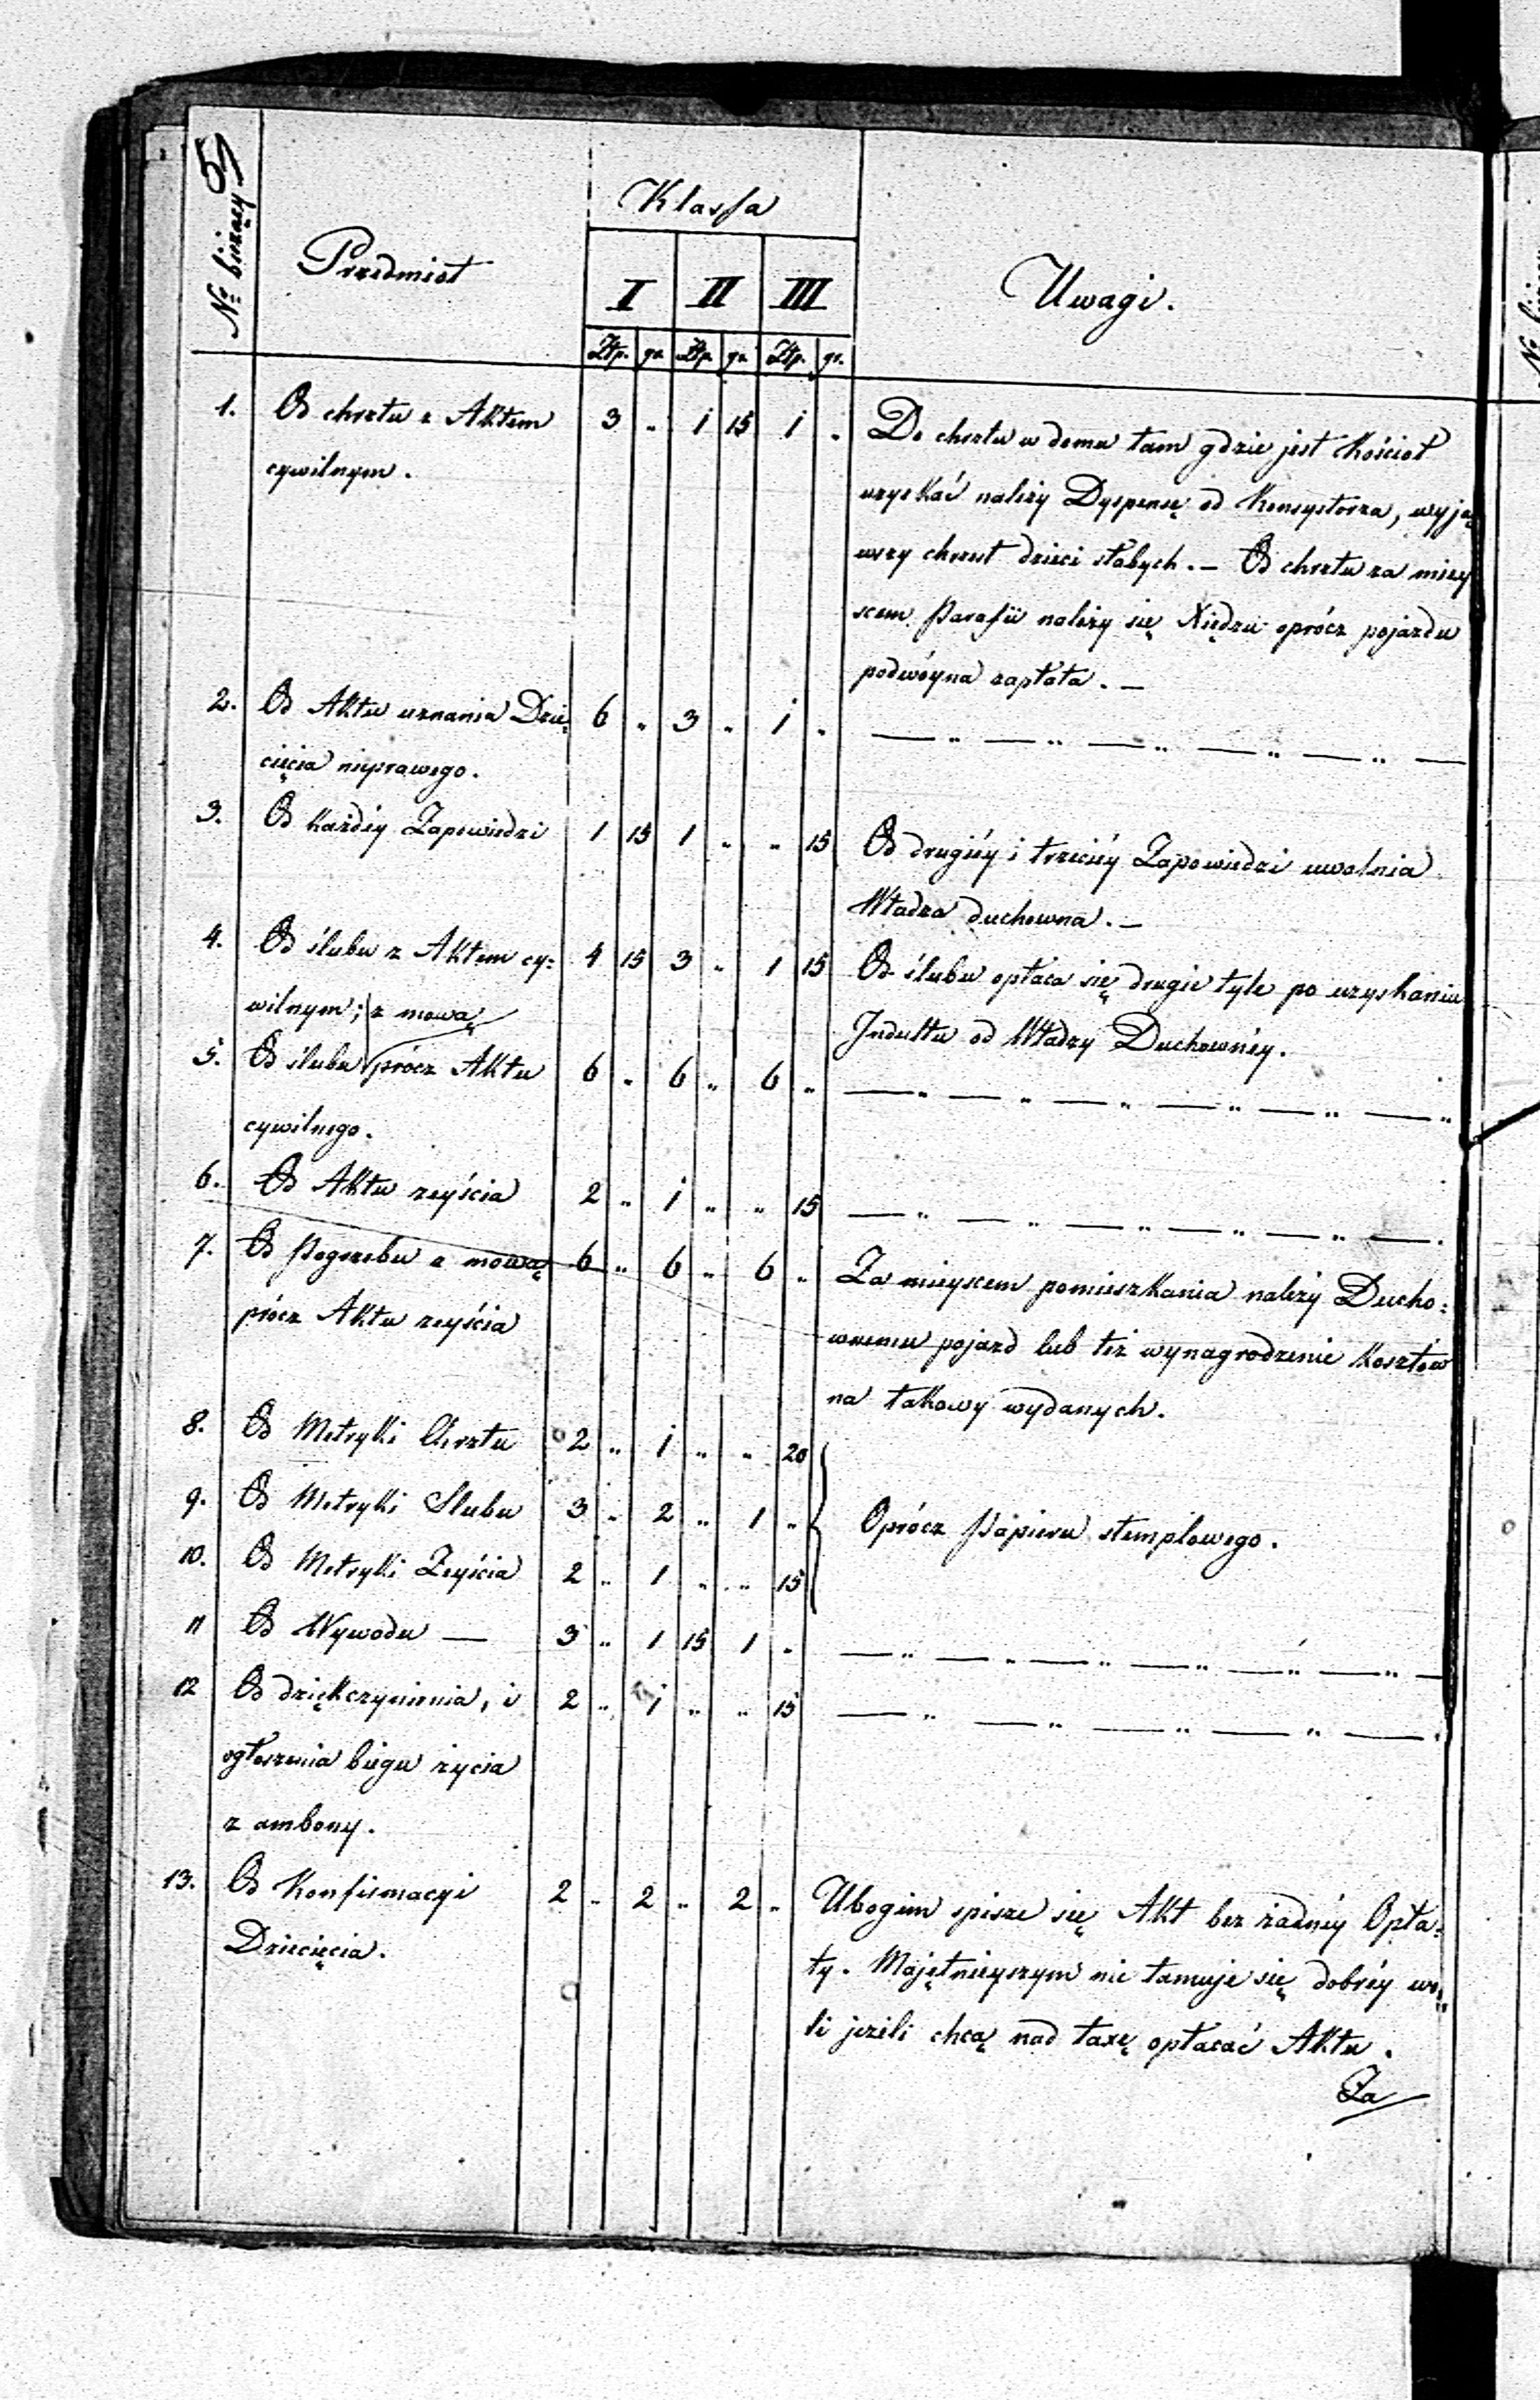 57
Nº bieżący
Przedmiot
Klassa
Uwagi.
I II III
Złp. gr. Złp. gr. Złp. gr.
1. Od chrztu z Aktem 3 „ 1 15 1 „ Do chrztu w domu tam gdzie jest Kościoł
cywilnym. uzyskać należy Dyspensę od Konsystorza, wyją
wszy chrzest dzieci słabych. — Od chrztu za miey
scem Parafii należy się Xiędzu oprócz pojazdu
podwóyna zapłata. —
2. Od Aktu uznania Dzie 6 „ 3 „ 1 „ — „ — „ — „ — „ — „ —
cięcia nieprawego.
3. Od każdéy Zapowiedzi 1 15 1 „ „ 15 Od drugiéy i trzeciéy Zapowiedzi uwolnia
Władza duchowna. —
4. Od ślubu z Aktem cy= 4 15 3 „ 1 15 Od ślubu opłaca się drugie tyle po uzyskaniu
wilnym; z mową Indultu od Władzy Duchownéy.
5. Od ślubu prócz Aktu 6 „ 6 „ 6 „ — „ — „ — „ — „ — „ — „
cywilnego.
6. Od Aktu zeyścia 2 „ 1 „ „ 15 — „ — „ — „ — „ — „ — .
7. Od Pogrzebu z mową 6 „ 6 „ 6 „ Za mieyscem pomieszkania należy Ducho=
prócz Aktu zeyścia wnemu pojazd lub też wynagrodzenie kosztów
na takowy wydanych.
8. Od Metryki Chrztu 2 „ 1 „ „ 20
9. Od Metryki Slubu 3 „ 2 „ 1 „ Oprócz Papieru stemplowego.
10. Od Metryki Zeyścia 2 „ 1 „ „ 15
11 Od Wywodu — 3 „ 1 15 1 „ — „ — „ — „ — „ — „ — „ —
12 Od dziękczynienia, i 2 „ 1 „ „ 15 — „ — „ — „ — „ — .
ogłoszenia biegu życia
z ambony.
13. Od Konfirmacyi 2 „ 2 „ 2 „ Ubogim spisze się Akt bez żadnéy Opła=
Dziecięcia. ty. Majętnieyszym nie tamuje się dobréy wo=
li jeżeli chcą nad taxę opłacać Akta.
Za